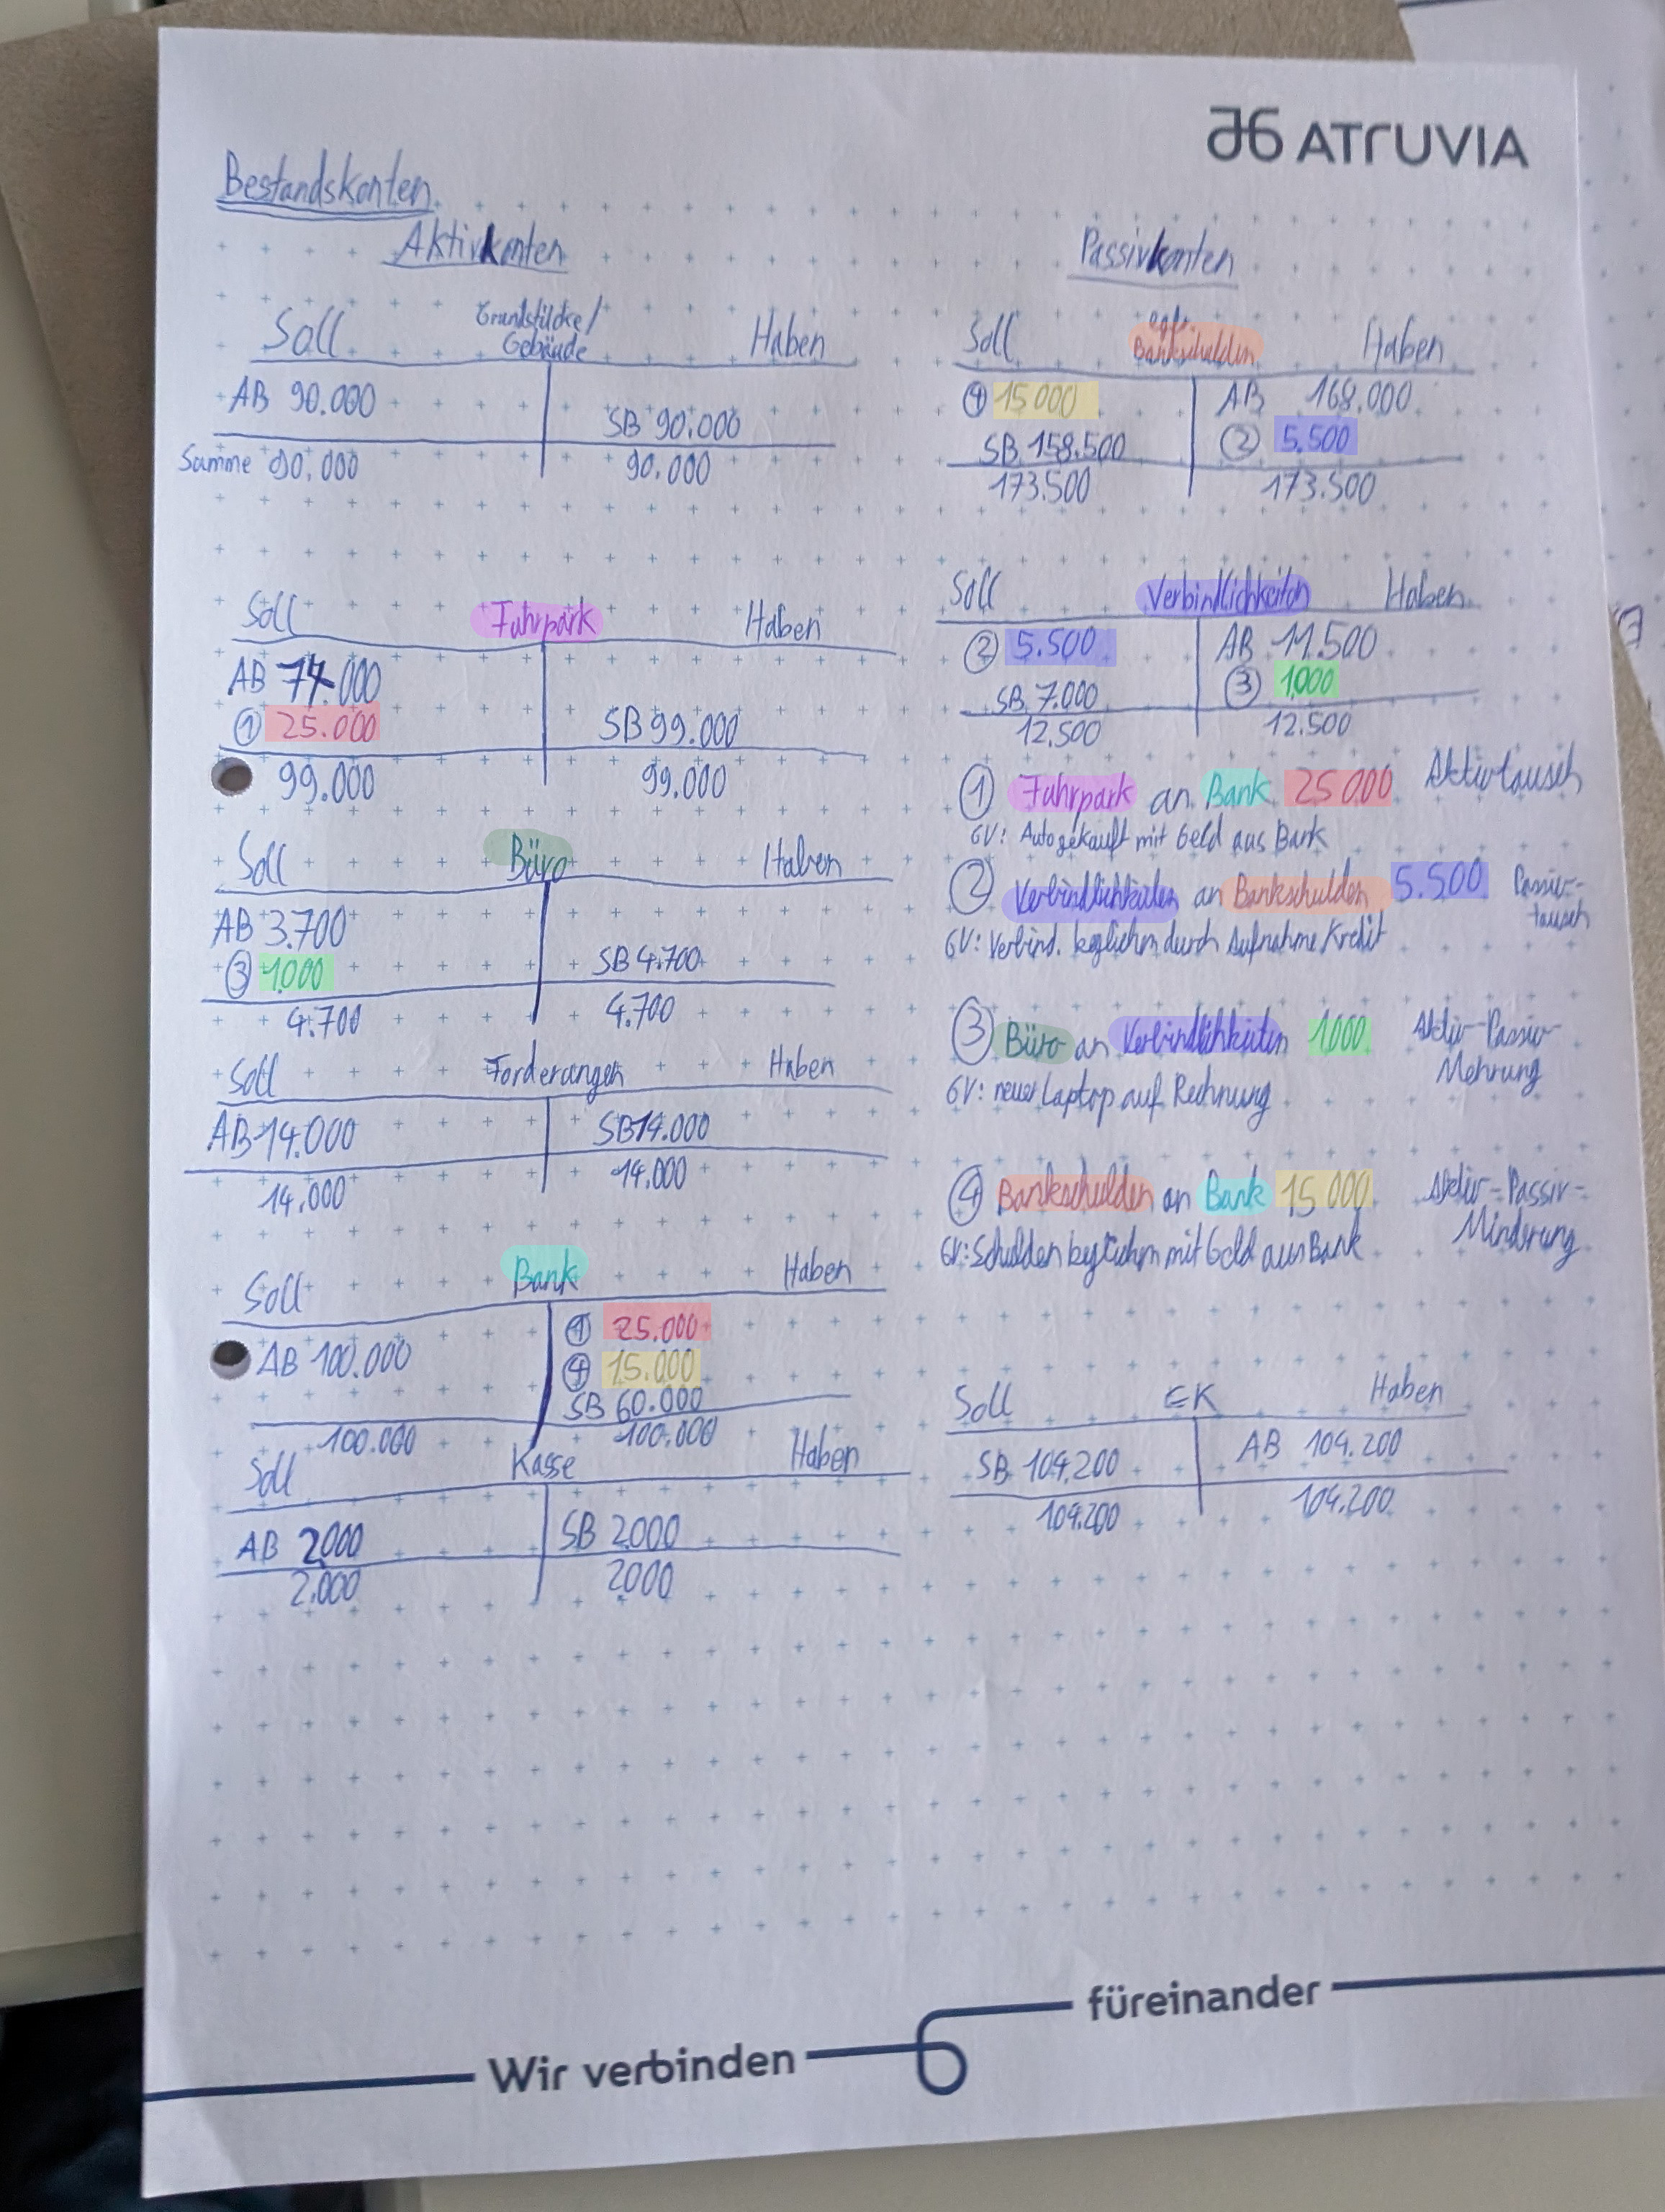 ATRUVIA
Bestandskonten
Aktivkonten
Soll Grundstücke/ Haben
Gebäude
AB 90.000
SB 90.000
Summe 90.000 90.000
Soll Fuhrpark Haben
AB 74.000
① 25.000 SB 99.000
99.000 99.000
Soll Büro Haben
AB 3.700
③ 1.000 SB 4.700
4.700 4.700
Soll Forderungen Haben
AB 14.000 SB 14.000
14.000 14.000
Soll Bank Haben
① 25.000
AB 100.000 ④ 15.000
SB 60.000
100.000 100.000
Soll Kasse Haben
AB 2000 SB 2000
2.000 2000
Passivkonten
Soll Bankschulden Haben
④ 15 000 AB 168.000
SB 158.500 ② 5.500
173.500 173.500
Soll Verbindlichkeiten Haben
② 5.500 AB 11.500
SB 7.000 ③ 1000
12.500 12.500
① Fuhrpark an Bank 25 000 Aktivtausch
GV: Auto gekauft mit Geld aus Bank
② Verbindlichkeiten an Bankschulden 5.500 Passiv-
tausch
GV: Verbind. beglichen durch Aufnahme Kredit
③ Büro an Verbindlichkeiten 1000 Aktiv-Passiv-
Mehrung
GV: neuer Laptop auf Rechnung
④ Bankschulden an Bank 15 000 Aktiv-Passiv-
Minderung
GV: Schulden beglichen mit Geld aus Bank
Soll EK Haben
SB 104.200 AB 104.200
104.200 104.200
Wir verbinden füreinander